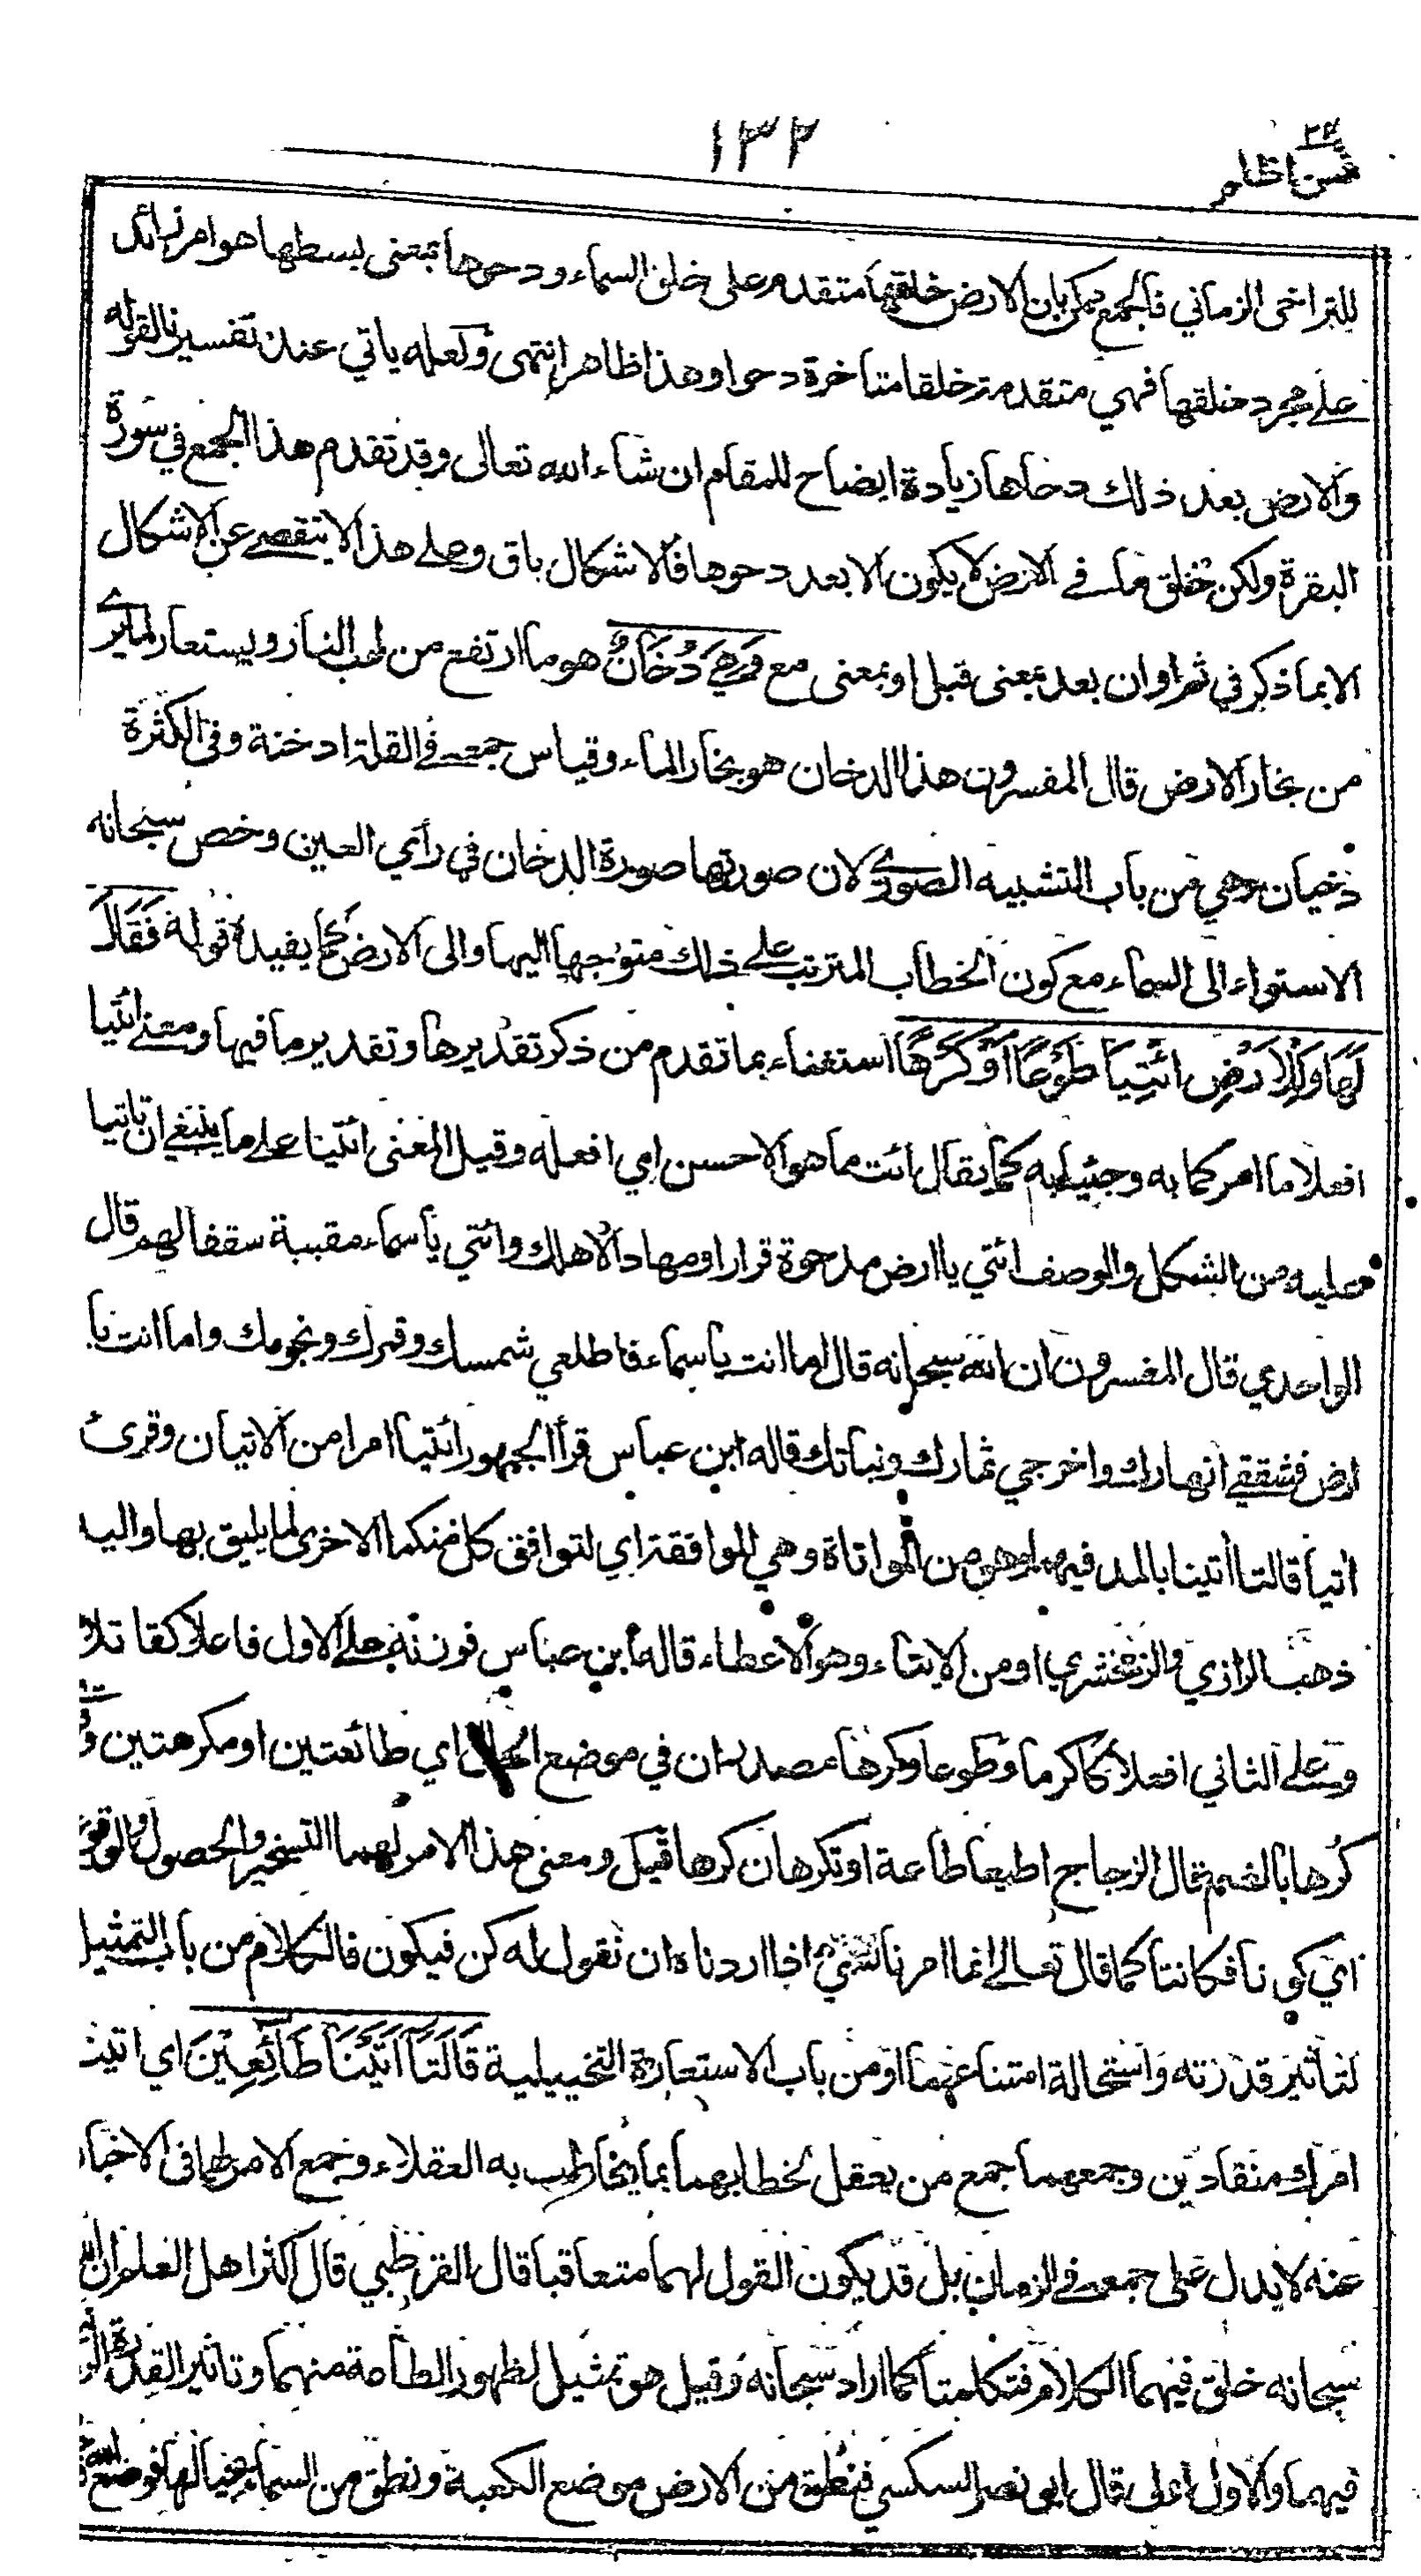 ١٣٢
٢٤
فمن اظلم
للتراخي الزماني فالجمع ممكن بان الارض خلقها متقدم على خلق السماء ودحوها بمعنى بسطها هو امر زائد
على مجرد خلقها فهي متقدمة خلقا متاخرة دحوا وهذا ظاهر انتهى ولعله ياتي عند تفسيرنا لقوله
والارض بعد ذلك دحاها زيادة ايضاح للمقام ان شاء الله تعالى وقد تقدم هذا الجمع في سورة
البقرة ولكن خلق ما في الارض لا يكون الا بعد دحوها فالاشكال باق وعلى هذا لا يتقصى عن الاشكال
الا بما ذكر في ثم او ان بعد بمعنى قبل او بمعنى مع وَهِيَ دُخَانٌ هو ما ارتفع من لهب النار ويستعار لما يرى
من بخار الارض قال المفسرون هذا الدخان هو بخار الماء وقياس جمعه في القلة ادخنة وفي الكثرة
دخيان وهي من باب التشبيه الصوري لان صورتها صورة الدخان في رأي العين وخص سبحانه
الاستواء الى السماء مع كون الخطاب المترتب على ذلك متوجها اليها والى الارض كما يفيده قوله فَقَالَ
لَهَا وَلِلْاَرْضِ ائْتِيَا طَوْعًا اَوْ كَرْهًا استغناء بما تقدم من ذكر تقديرها وتقدير ما فيها ومعنى ائتيا
افعلا ما امركما به وجيئا به كما يقال ائت ما هو الاحسن اي افعله وقيل المعنى ائتينا على ما ينبغي ان تاتيا
عليه من الشكل والوصف ائتي يا ارض مدحوة قرارا ومهادا لاهلك وائتي يا سماء مقببة سقفا لهم قال
الواحدي قال المفسرون ان الله سبحانه قال اما انت يا سماء فاطلعي شمسك وقمرك ونجومك واما انت يا
ارض فشققي انهارك واخرجي ثمارك ونباتك قاله ابن عباس قرأ الجمهور ائتيا امرا من الاتيان وقرئ
اتيا قالتا اتينا بالمد فيهما وهو من المواتاة وهي الموافقة اي لتوافق كل منكما الاخرى لما يليق بها واليه
ذهب الرازي والزمخشري او من الايتاء وهو الاعطاء قاله ابن عباس فوزنه على الاول فاعلا كقاتلا
وعلى الثاني افعلا كاكرما وطوعا وكرها مصدران في موضع الحال اي طائعتين او مكرهتين وقرئ
كُرها بالضم قال الزجاج اطيعا طاعة او تكرهان كرها قيل ومعنى هذا الامر لهما التسخير والحصول والوقوع
اي كونا فكانتا كما قال تعالى انما امرنا لشيء اذا اردناه ان نقول له كن فيكون فالكلام من باب التمثيل
لتاثير قدرته واستحالة امتناعهما او من باب الاستعارة التخييلية قَالَتَا اَتَيْنَا طَائِعِيْنَ اي اتينا
امرك منقادين وجمعهما جمع من يعقل لخطابهما بما يخاطب به العقلاء وجمع الامر لهما في الاخبار
عنه لا يدل على جمعه في الزمان بل قد يكون القول لهما متعاقبا قال القرطبي قال اكثر اهل العلم ان الله
سبحانه خلق فيهما الكلام فتكلمتا كما اراد سبحانه وقيل هو تمثيل لظهور الطاعة منهما وتاثير القدرة
فيهما والاول اعلى قال ابو نصر السكسي فنطق من الارض موضع الكعبة ونطق من السماء بحيالها فوضع الله